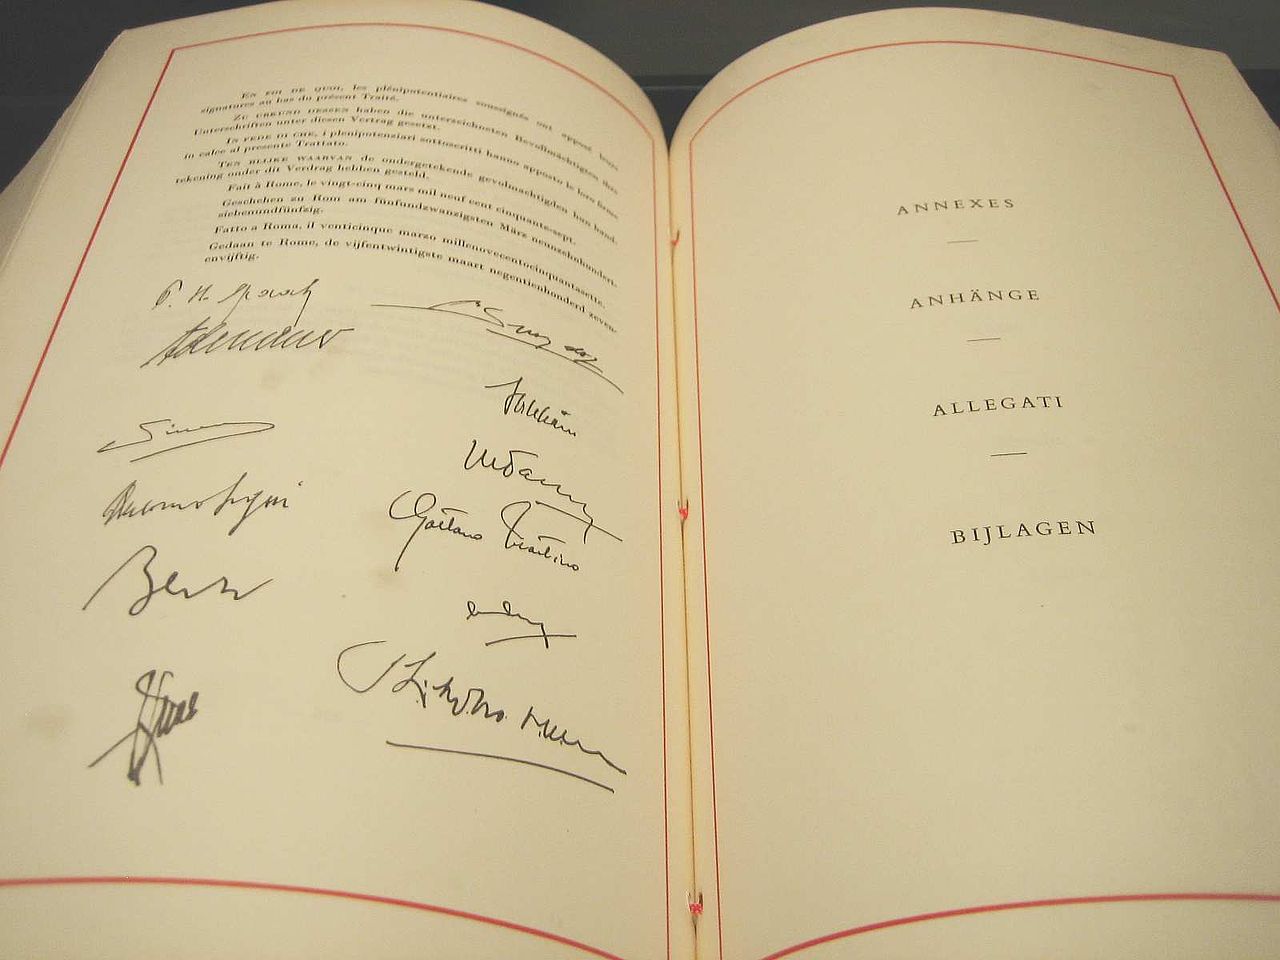 EN FOI DE QUOI, les plénipotentiaires soussignés ont apposé leurs
signatures au bas du présent Traité.
ZU URKUND DESSEN haben die unterzeichneten Bevollmächtigten ihre
Unterschriften unter diesen Vertrag gesetzt.
IN FEDE DI CHE, i plenipotenziari sottoscritti hanno apposto le loro firme
in calce al presente Trattato.
TEN BLIJKE WAARVAN de ondergetekende gevolmachtigden hun hand-
tekening onder dit Verdrag hebben gesteld.
Fait à Rome, le vingt-cinq mars mil neuf cent cinquante-sept.
Geschehen zu Rom am fünfundzwanzigsten März neunzehnhundert-
siebenundfünfzig.
Fatto a Roma, il venticinque marzo millenovecentocinquantasette.
Gedaan te Rome, de vijfentwintigste maart negentienhonderd zeven-
envijftig.
P. H. Spaak
Gaetano Martino
ANNEXES
ANHÄNGE
ALLEGATI
BIJLAGEN